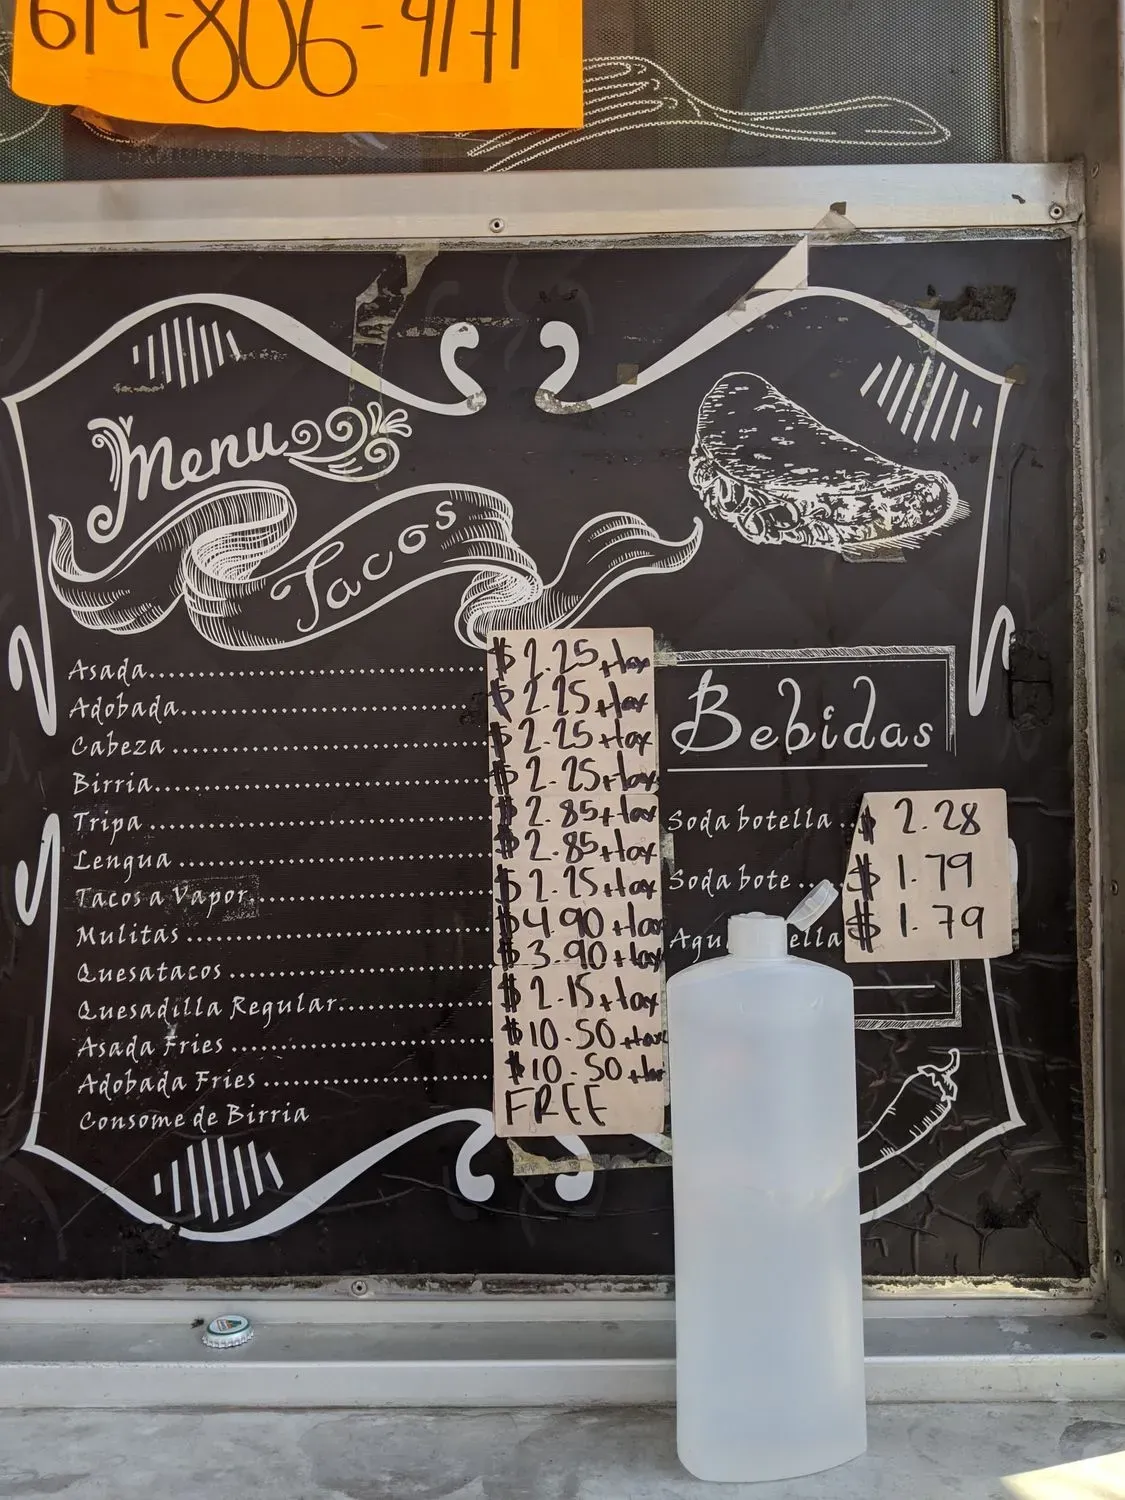 619-806-9171
Menu
Tacos
Asada $2.25 + tax
Adobada $2.25 + tax
Cabeza $2.25 + tax
Birria $2.25 + tax
Tripa $2.85 + tax
Lengua $2.85 + tax
Tacos a Vapor $2.25 + tax
Mulitas $4.90 + tax
Quesatacos $3.90 + tax
Quesadilla Regular $2.15 + tax
Asada Fries $10.50 + tax
Adobada Fries $10.50 + tax
Consome de Birria FREE
Bebidas
Soda botella $ 2.28
Soda bote $ 1.79
Agu ella $ 1.79